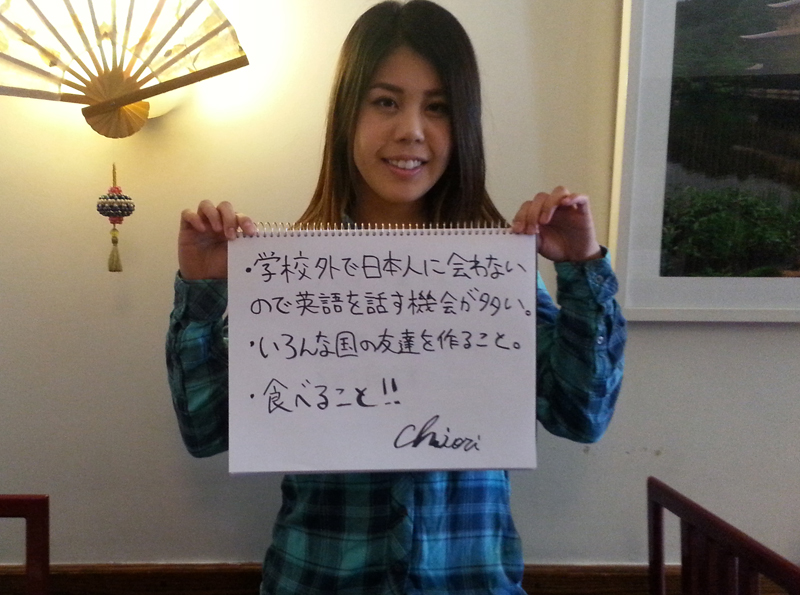 ・学校外で日本人に会わない
ので英語を話す機会が多い。
・いろんな国の友達を作ること。
・食べること!!
Chiori